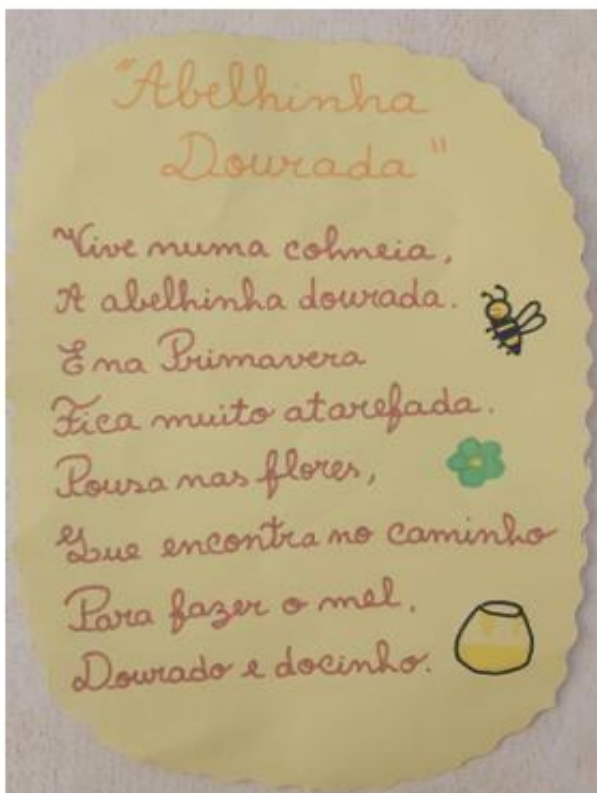 "Abelhinha
Dourada"
Vive numa colmeia,
A abelhinha dourada.
E na Primavera
Fica muito atarefada.
Pousa nas flores,
Que encontra no caminho
Para fazer o mel,
Dourado e docinho.